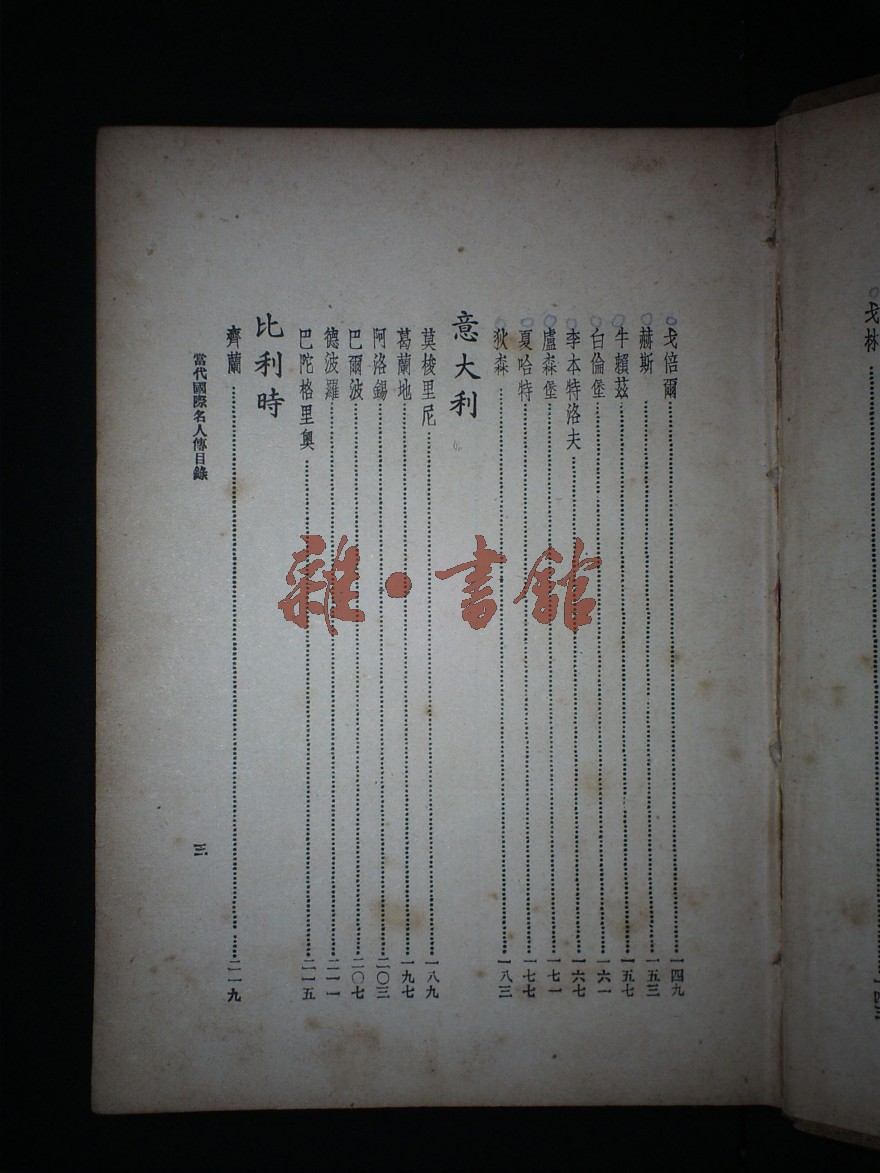 戈林
戈倍爾 一四九
赫斯 一五三
牛賴茲 一五七
白倫堡 一六一
李本特洛夫 一六七
盧森堡 一七一
夏哈特 一七七
狄森 一八三
意大利
莫梭里尼 一八九
葛蘭地 一九七
阿洛錫 二〇三
巴爾波 二〇七
德波羅 二一一
巴陀格里奧 二一五
比利時
齊蘭 二一九
當代國際名人傳目錄
三
雜·書館